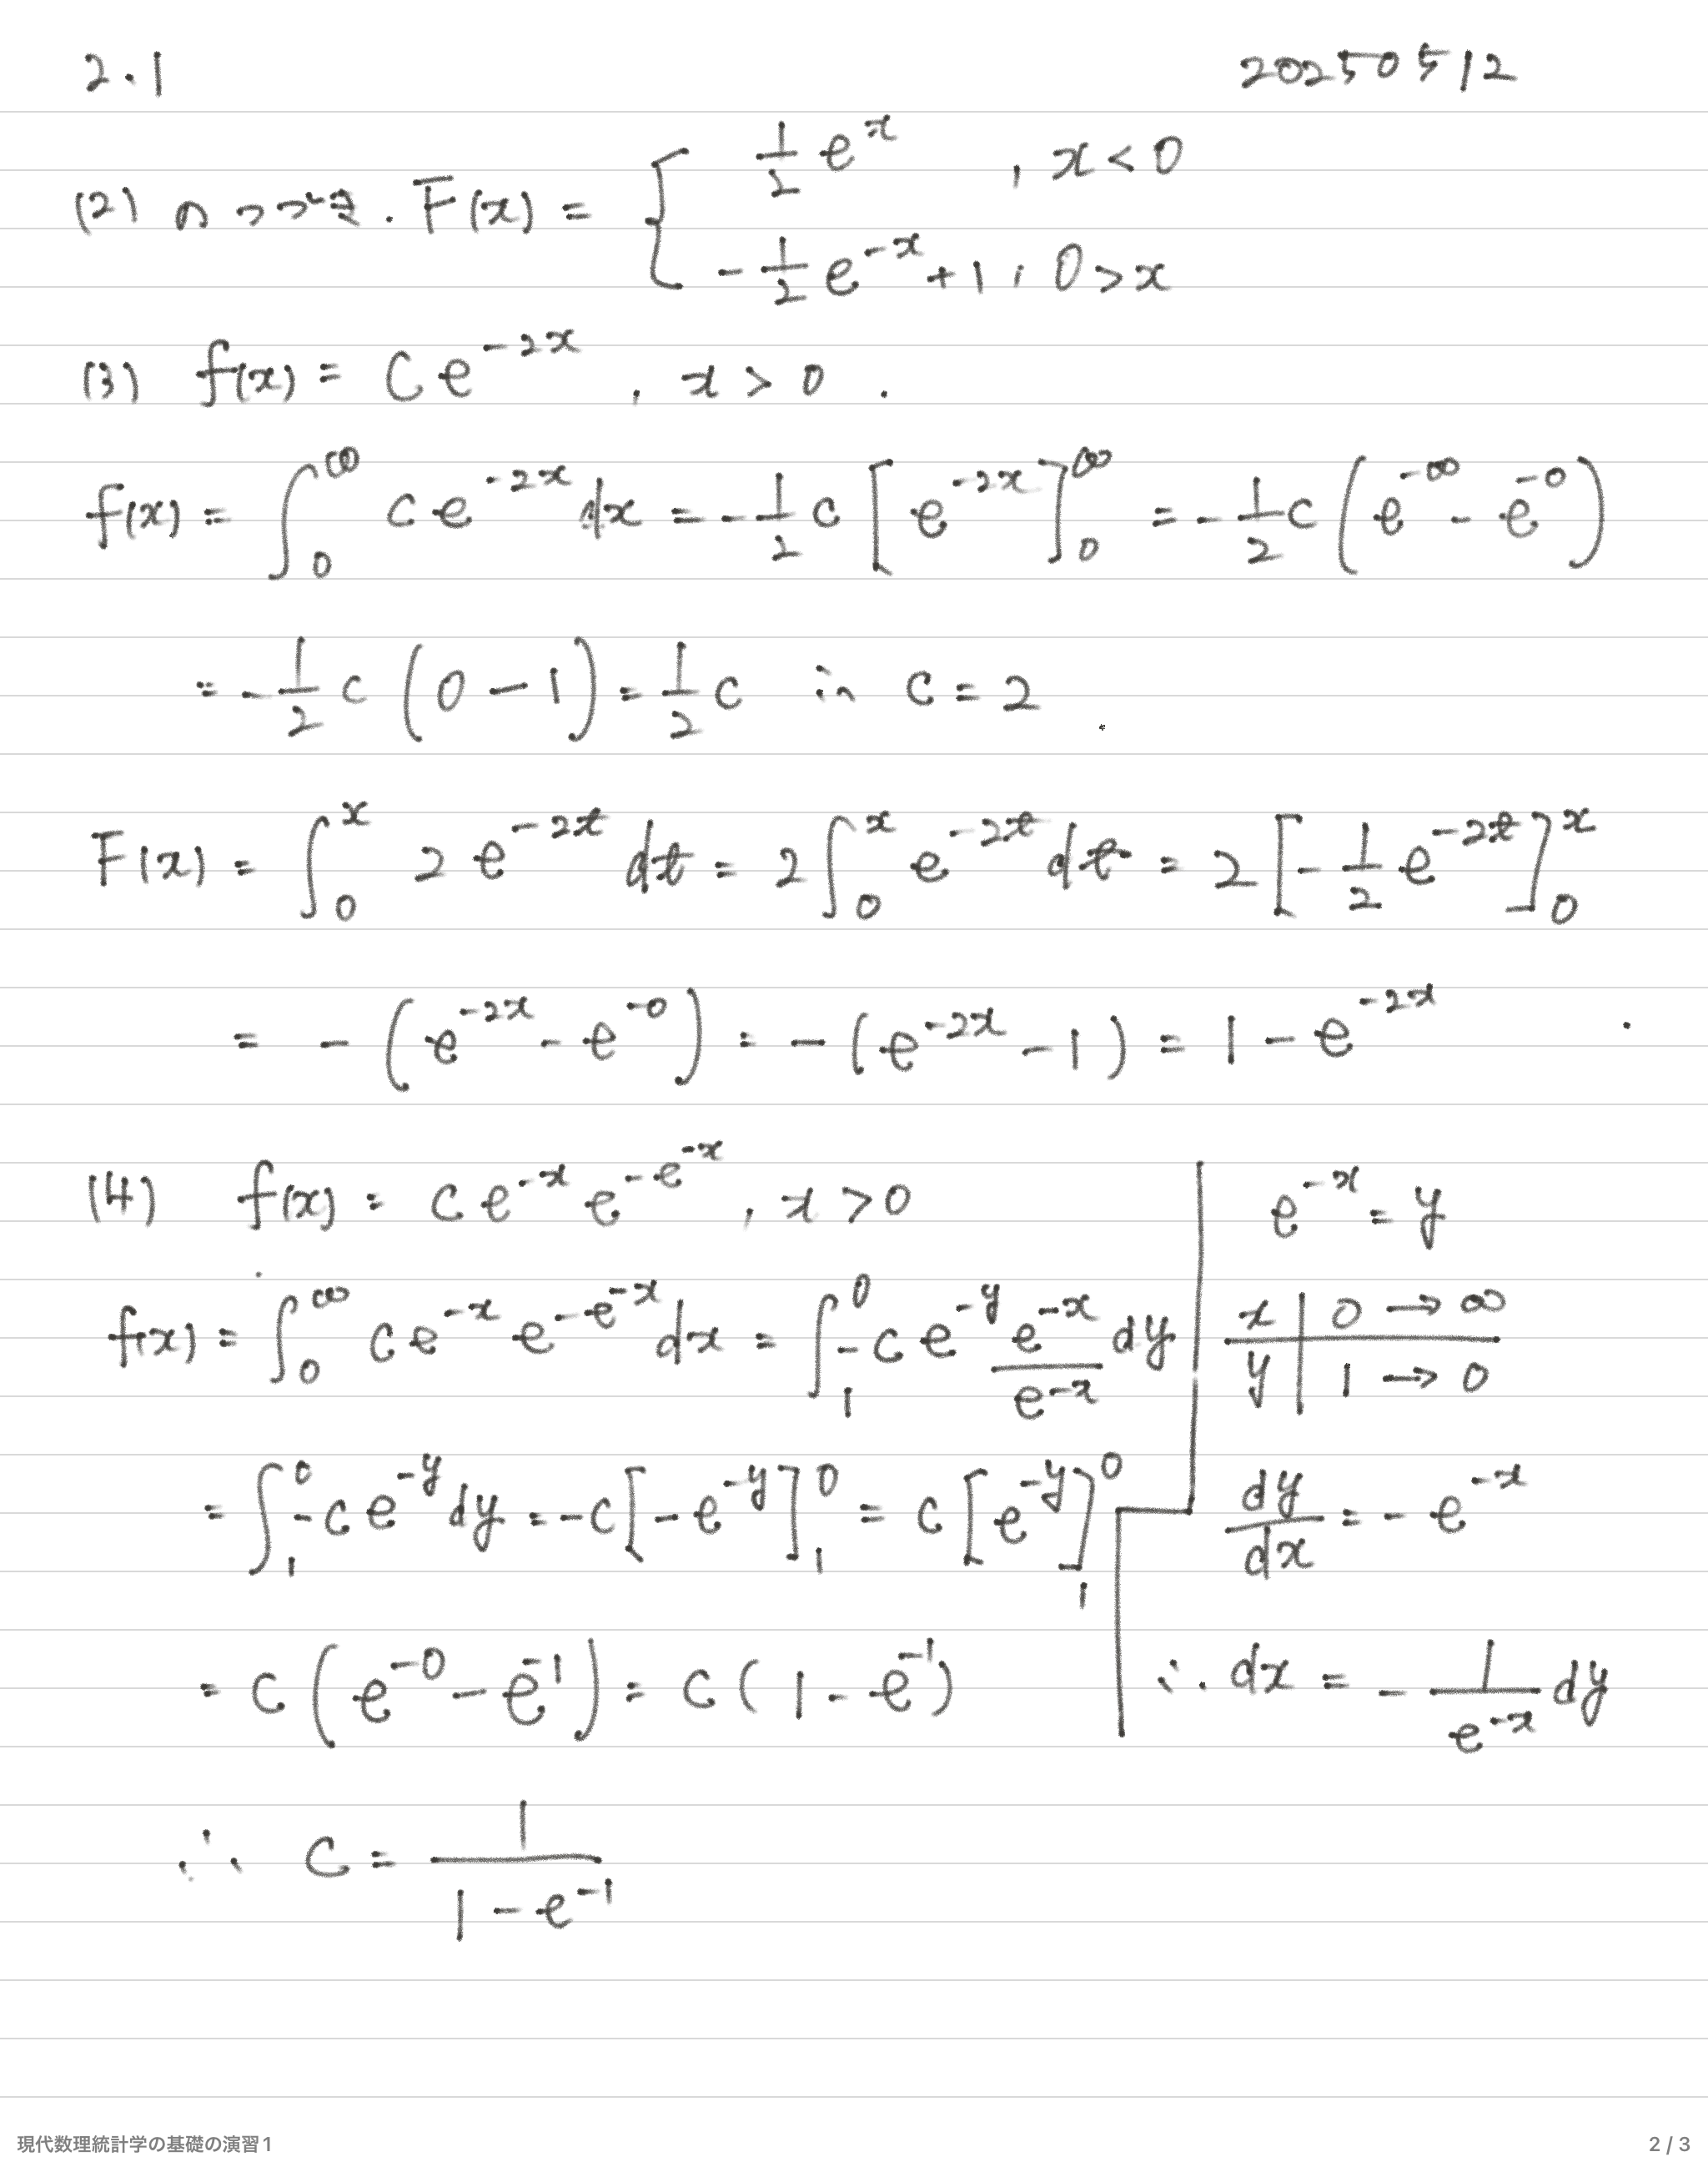 2.1 20250512
(2) のつづき. F(x) = { 1/2 e^x , x < 0
-1/2 e^{-x} + 1 , 0 > x
(3) f(x) = C e^{-2x} , x > 0 .
f(x) = ∫_0^∞ c e^{-2x} dx = -1/2 c [e^{-2x}]_0^∞ = -1/2 c (e^{-∞} - e^{-0})
= -1/2 c (0 - 1) = 1/2 c ∴ c = 2
F(x) = ∫_0^x 2 e^{-2t} dt = 2 ∫_0^x e^{-2t} dt = 2 [-1/2 e^{-2t}]_0^x
= - (e^{-2x} - e^{-0}) = - (e^{-2x} - 1) = 1 - e^{-2x}
(4) f(x) = c e^{-x} e^{-e^{-x}} , x > 0
f(x) = ∫_0^∞ c e^{-x} e^{-e^{-x}} dx = ∫_1^0 -c e^{-y} e^{-x}/e^{-x} dy
= ∫_1^0 -c e^{-y} dy = -c [-e^{-y}]_1^0 = c [e^{-y}]_1^0
= c (e^{-0} - e^{-1}) = c (1 - e^{-1})
∴ c = 1/(1 - e^{-1})
e^{-x} = y
x | 0 → ∞
y | 1 → 0
dy/dx = - e^{-x}
∴ dx = - 1/e^{-x} dy
現代数理統計学の基礎の演習1 2 / 3